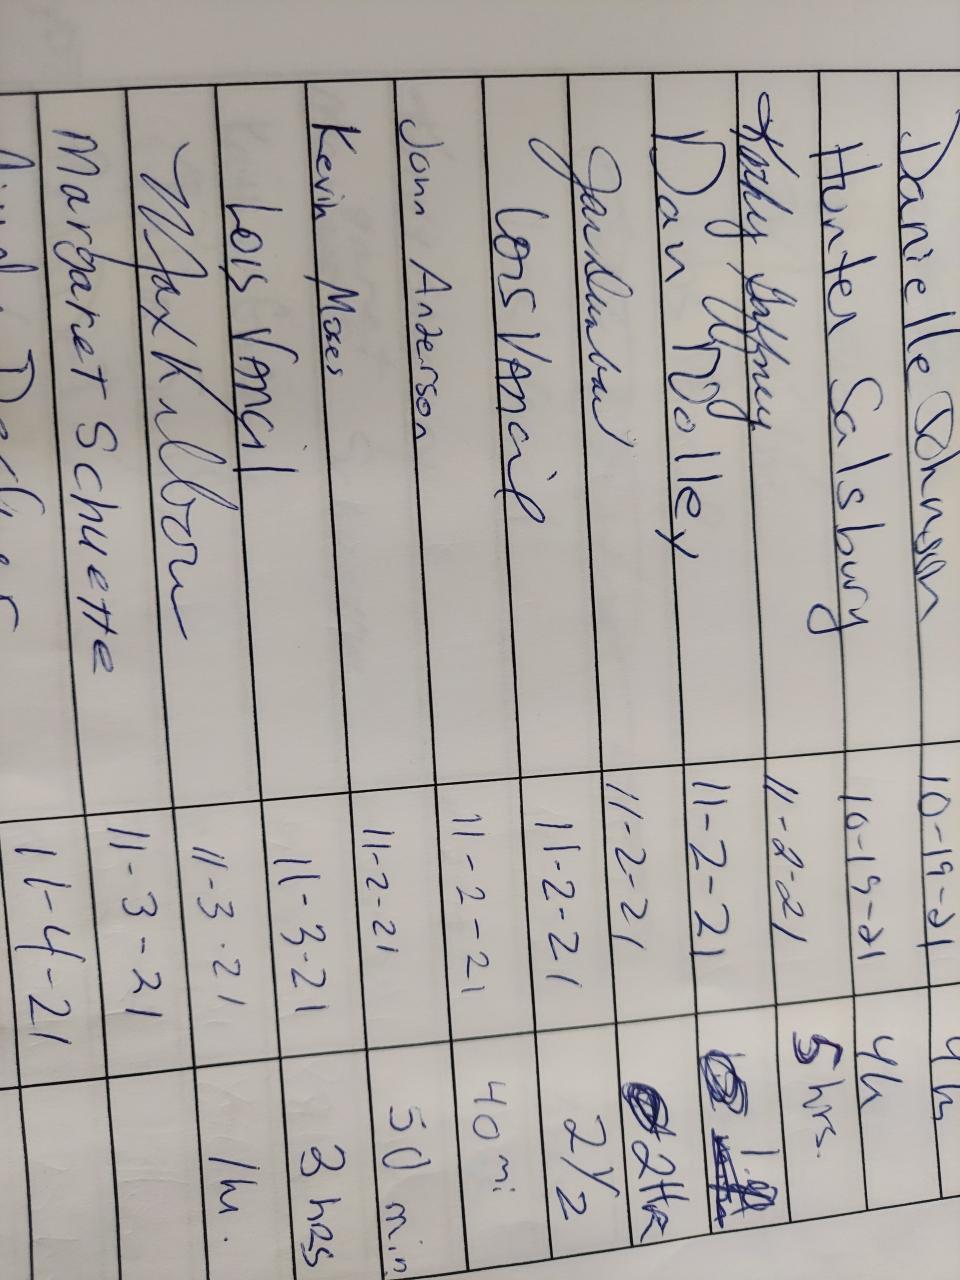 Danielle Johnson 10-19-21 4h
Hunter Salsbury 10-19-21 4h
Kathy Gaffney 11-2-21 5 hrs.
Dan Dolley 11-2-21
11-2-21 2 HR
Lois Vancil 11-2-21 2 1/2
John Anderson 11-2-21 40 mi
Kevin Moses 11-2-21 50 min
Lois Vancil 11-3-21 3 hrs
Max 11-3-21 1 hr.
Margaret Schuette 11-3-21
11-4-21